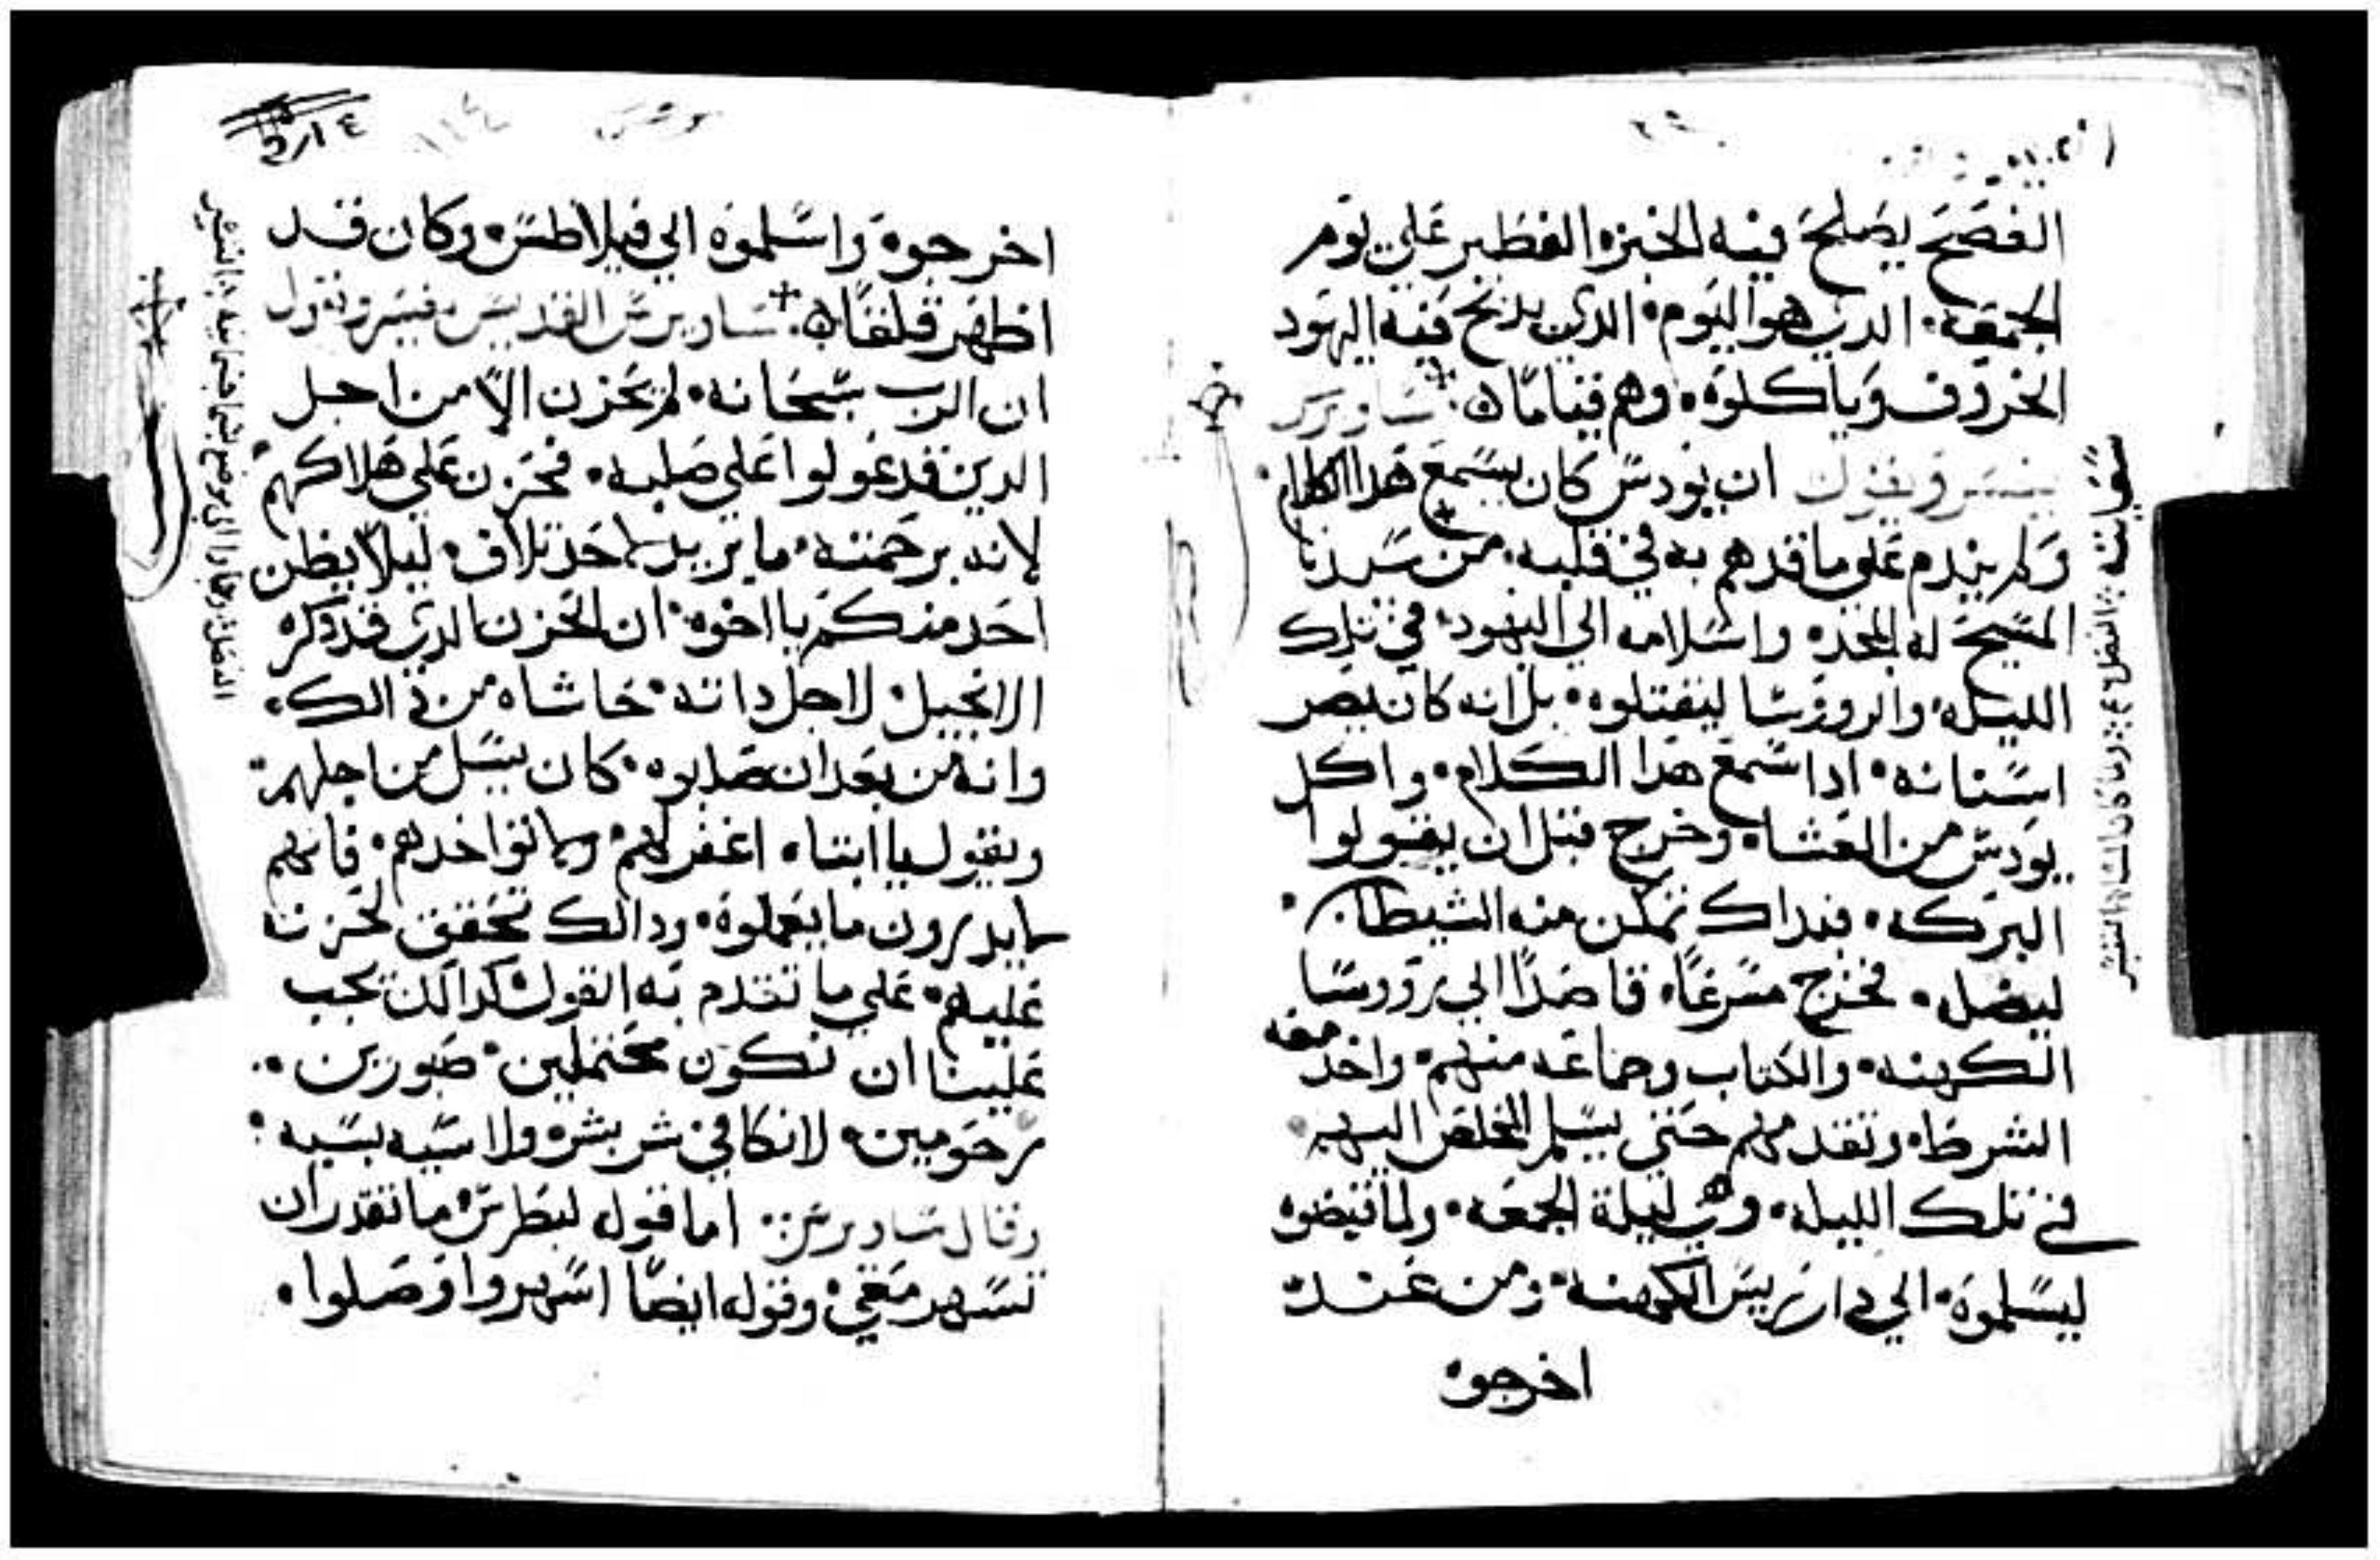 الفصح يصلح فيه الخبزه الفطير علي يوم
الجمعه • الدي هوا اليوم • الدي يدبح فيه اليهود
الخروف وياكلوه • وهم قياماً ساويرس
يفسر ويقول ان يودس كان يسمع هدا الكلام •
ولم يندم علي ما قدهم به في قلبه • من سيدنا
المسيح له المجده واسلامه الي اليهود • في تلك
الليله والرووسا ليقتلوه • بل انه كان يصر
اسنانه • ادا سمع هدا الكلام • واكل
يودس من العشاه وخرج قبل ان يقولوا
البركه • فبداك تمكن منه الشيطان •
ليضل • فخرج مسرعاً • قاصداً الي رووسا
الكهنه • والكتاب وجماعه منهم • واخد معه
الشرطاه وتقدمهم حتي يسلم المخلص اليهم
في تلك الليله • وهي ليلة الجمعه • ولما قبضوه
ليسلموه • الي دار ريس الكهنه • ومن عنده
اخرجوه
سقيانته
اخرجوه واسلموه الي فيلاطس • وكان قد
اظهر قلقاً ساويرس القديس • فيسر ويقول
ان الرب سبحانه • لم يحزن الا من اجل
الدين قد عولوا علي صلبه • فحزن علي هلاكهم •
لانه برحمته • ما يريد لاحد تلاف • ليلا يظن
احد منكم يا اخوه • ان الحزن الدي قد دكره
الانجيل • لاجل داته • حاشاه من دالك •
وانه من بعد ان صلبوه • كان يسل من اجلهم •
ويقول يا ابتاه اغفر لهم • ولا تواخدهم • فانهم
لا يدرون ما يعملوه • ودالك تحقق لحزنه
عليهم • علي ما تقدم به القول كدالك يجب
علينا ان نكون محتملين • صبورين •
رحومين • لا نكافي شر بشره ولا سيه بسيه :
وقال ساويرس • اما قول لبطرس • ما تقدر ان
تسهر معي • وقوله ايضاً اسهروا وصلوا •